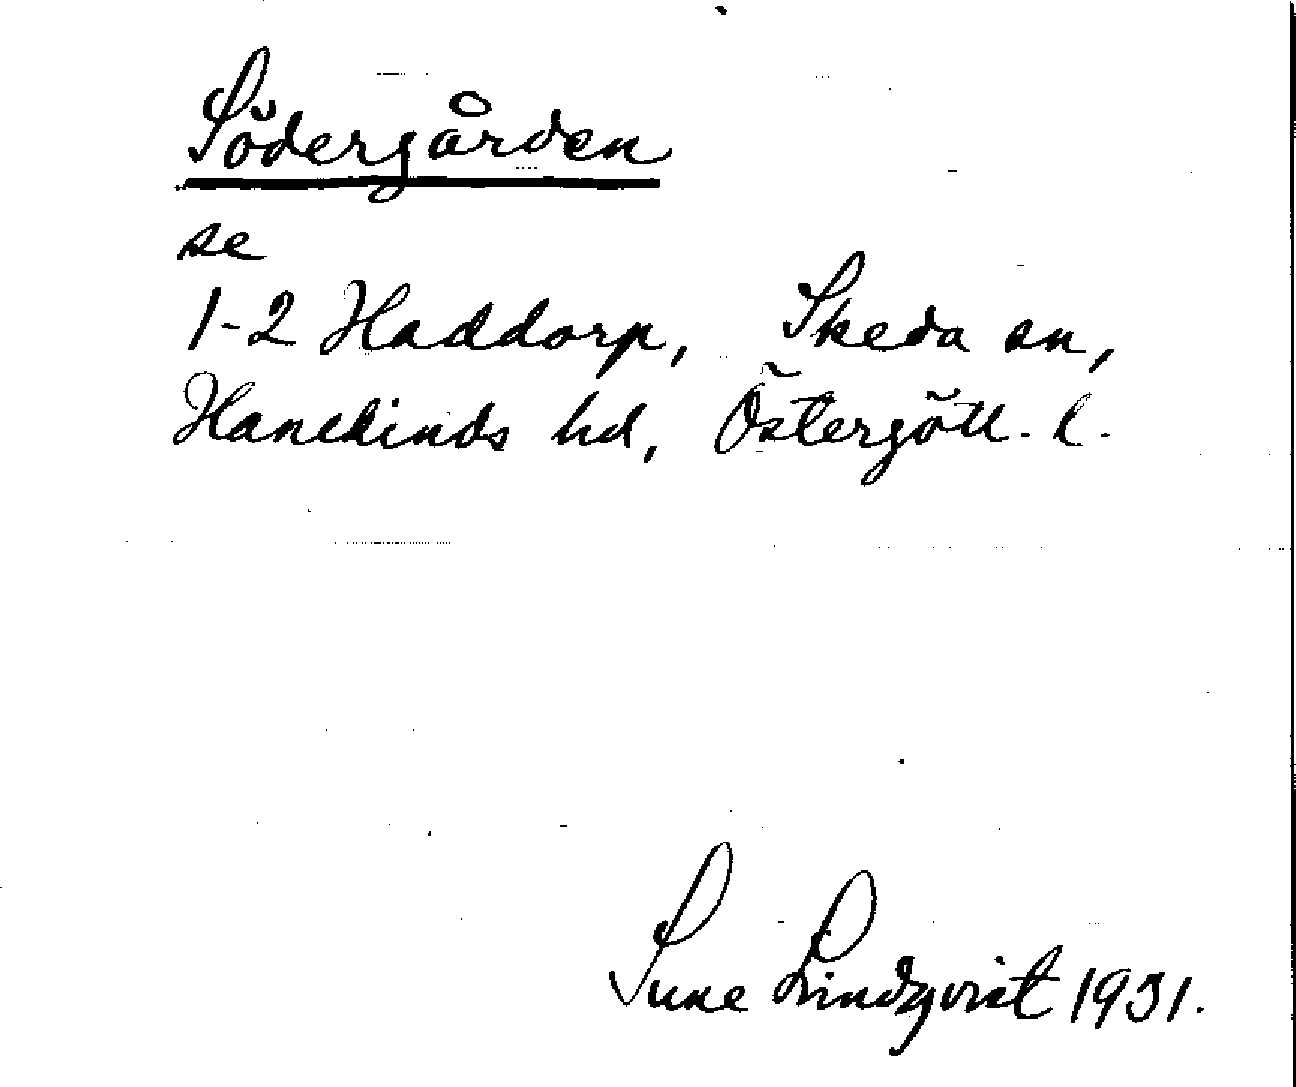 Södergården
se
1-2 Haddorp, Skeda sn,
Hanekinds hd, Östergötl. l.
Sune Lindqvist 1931.